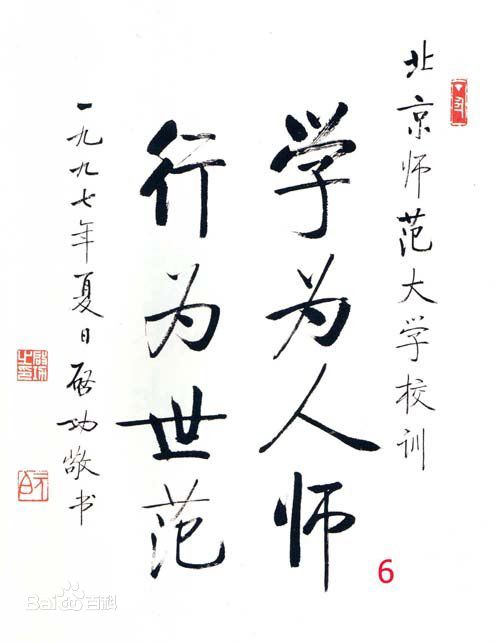 北京师范大学校训
学为人师
行为世范
一九九七年夏日启功敬书
6
Baidu百科